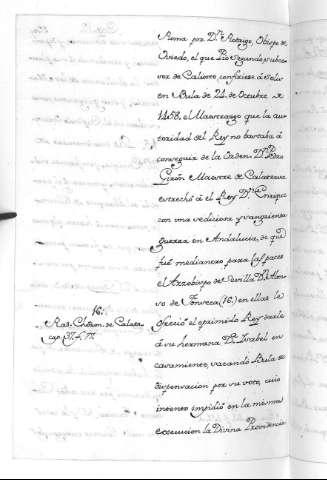 Roma por D.n Rodrigo, Obispo de
Oviedo, el que Pio Segundo, subce-
sor de Calixto, confirió à
en Bula de 24 de Octubre de
1458, el Maestrazgo que la au-
toridad del Rey no bastaba á
conseguir de la Orden; D.n Pedro
Girón Maestre de Calatrava
estrechó á el Rey D.n Enrique
con una sediciosa, y sangrienta
guerra en Andalucia, de que
fué medianero para las paces
el Arzobispo de Sevilla D.n Alon-
so de Fonseca (16) en ellas le
ofreció el oprimido Rey darle
á su hermana D.a Isabel en
casamiento, sacando Bula de
dispensacion por su voto, cuio
intento impidió en la misma
execucion la Divina Providencia
16.
Rad.s Chron. de Calatra.
cap. 37. f. 77